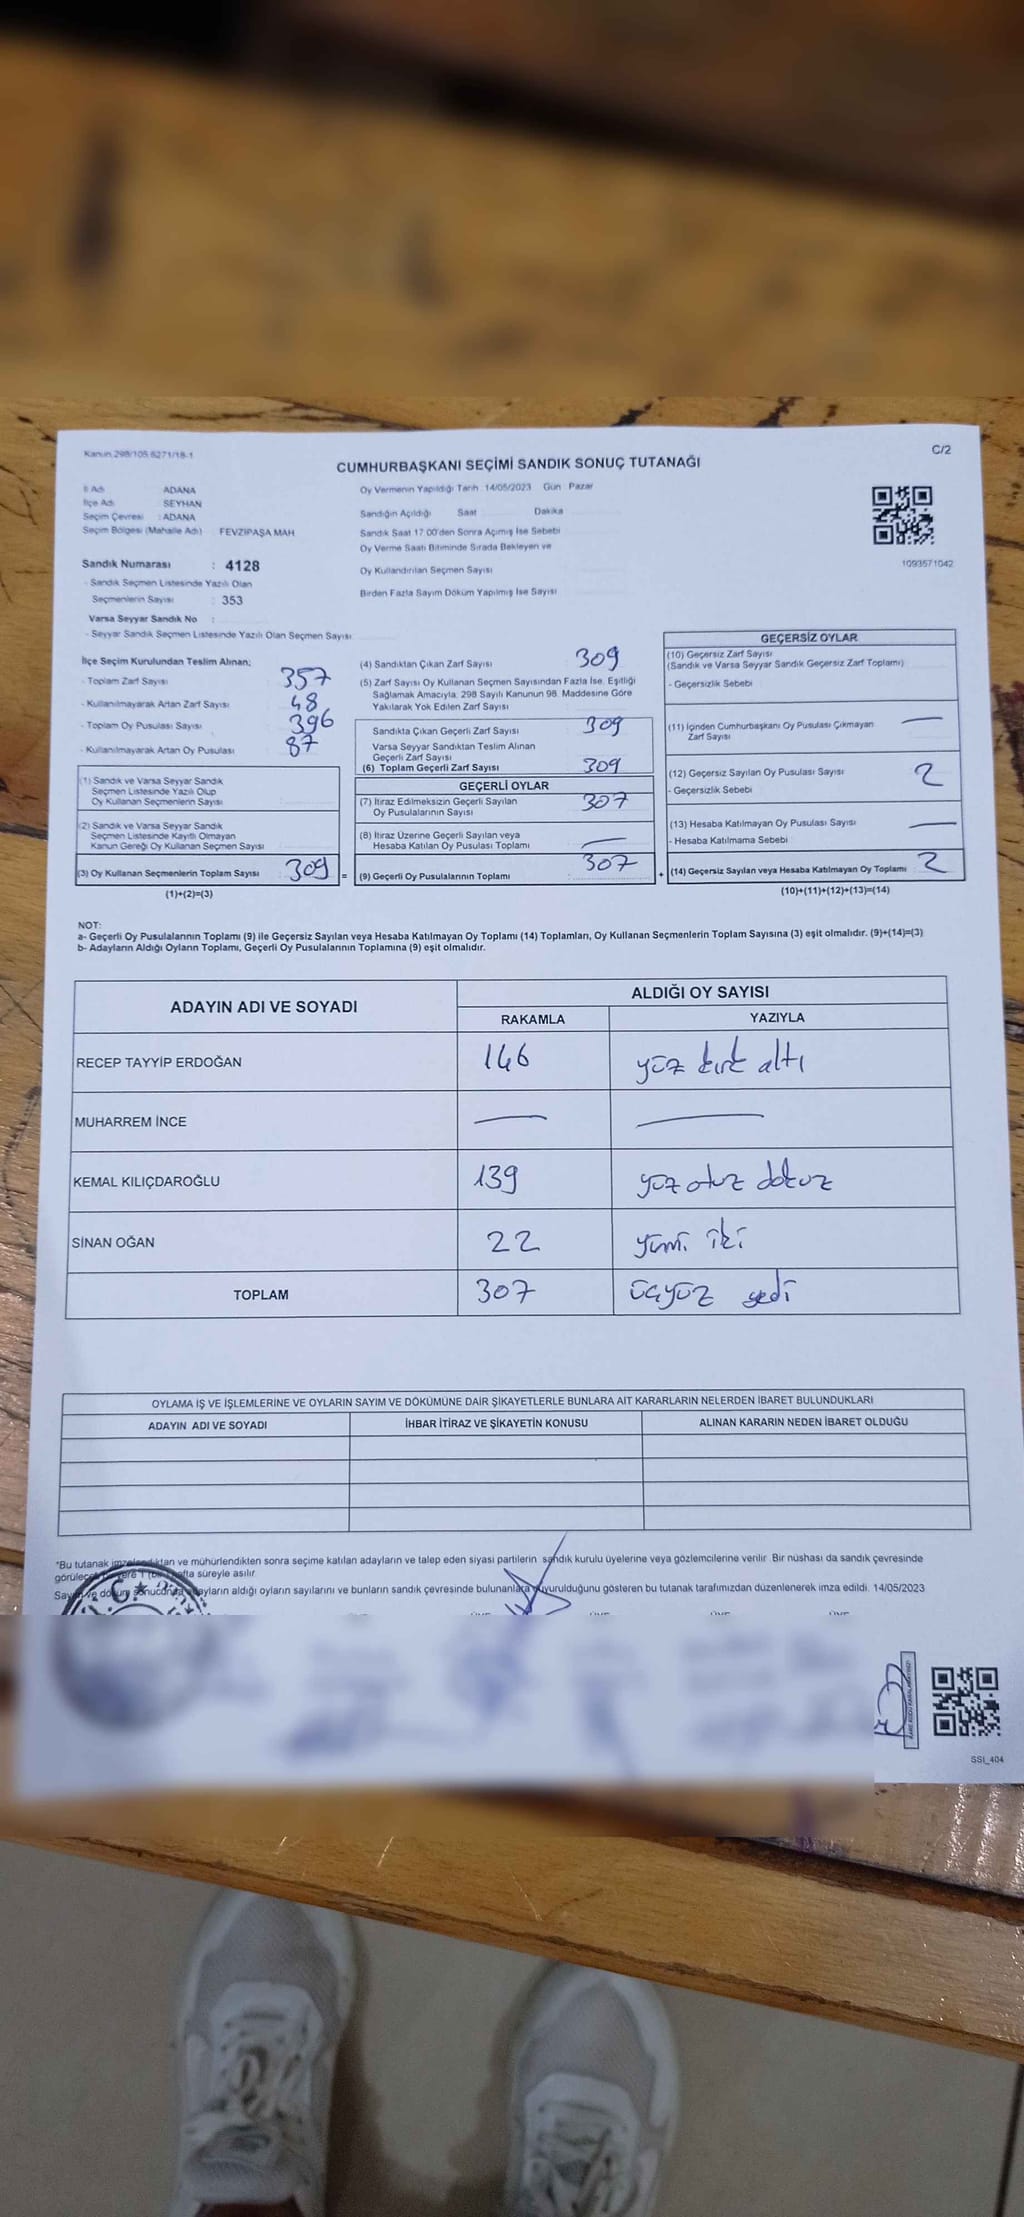 Kanun 298/105 6271/18-1
C/2
CUMHURBAŞKANI SEÇİMİ SANDIK SONUÇ TUTANAĞI
İl Adı ADANA
İlçe Adı SEYHAN
Seçim Çevresi : ADANA
Seçim Bölgesi (Mahalle Adı) FEVZİPAŞA MAH
Sandık Numarası : 4128
- Sandık Seçmen Listesinde Yazılı Olan
Seçmenlerin Sayısı : 353
Varsa Seyyar Sandık No :
- Seyyar Sandık Seçmen Listesinde Yazılı Olan Seçmen Sayısı
Oy Vermenin Yapıldığı Tarih 14/05/2023 Gün Pazar
Sandığın Açıldığı Saat Dakika
Sandık Saat 17 00'den Sonra Açımış İse Sebebi
Oy Verme Saati Bitiminde Sırada Bekleyen ve
Oy Kullandırılan Seçmen Sayısı
Birden Fazla Sayım Döküm Yapılmış İse Sayısı
1093571042
İlçe Seçim Kurulundan Teslim Alınan;
- Toplam Zarf Sayısı 357
- Kullanılmayarak Artan Zarf Sayısı 48
- Toplam Oy Pusulası Sayısı 396
- Kullanılmayarak Artan Oy Pusulası 87
(1) Sandık ve Varsa Seyyar Sandık
Seçmen Listesinde Yazılı Olup
Oy Kullanan Seçmenlerin Sayısı
(2) Sandık ve Varsa Seyyar Sandık
Seçmen Listesinde Kayıtlı Olmayan
Kanun Gereği Oy Kullanan Seçmen Sayısı
(3) Oy Kullanan Seçmenlerin Toplam Sayısı 309 =
(1)+(2)=(3)
(4) Sandıktan Çıkan Zarf Sayısı 309
(5) Zarf Sayısı Oy Kullanan Seçmen Sayısından Fazla İse, Eşitliği
Sağlamak Amacıyla, 298 Sayılı Kanunun 98. Maddesine Göre
Yakılarak Yok Edilen Zarf Sayısı
Sandıkta Çıkan Geçerli Zarf Sayısı 309
Varsa Seyyar Sandıktan Teslim Alınan
Geçerli Zarf Sayısı
(6) Toplam Geçerli Zarf Sayısı 309
GEÇERLİ OYLAR
(7) İtiraz Edilmeksizin Geçerli Sayılan 307
Oy Pusulalarının Sayısı
(8) İtiraz Üzerine Geçerli Sayılan veya
Hesaba Katılan Oy Pusulası Toplamı —
(9) Geçerli Oy Pusulalarının Toplamı 307 +
GEÇERSİZ OYLAR
(10) Geçersiz Zarf Sayısı
(Sandık ve Varsa Seyyar Sandık Geçersiz Zarf Toplamı)
- Geçersizlik Sebebi
(11) İçinden Cumhurbaşkanı Oy Pusulası Çıkmayan —
Zarf Sayısı
(12) Geçersiz Sayılan Oy Pusulası Sayısı 2
- Geçersizlik Sebebi
(13) Hesaba Katılmayan Oy Pusulası Sayısı —
- Hesaba Katılmama Sebebi
(14) Geçersiz Sayılan veya Hesaba Katılmayan Oy Toplamı 2
(10)+(11)+(12)+(13)=(14)
NOT:
a- Geçerli Oy Pusulalarının Toplamı (9) ile Geçersiz Sayılan veya Hesaba Katılmayan Oy Toplamı (14) Toplamları, Oy Kullanan Seçmenlerin Toplam Sayısına (3) eşit olmalıdır. (9)+(14)=(3)
b- Adayların Aldığı Oyların Toplamı, Geçerli Oy Pusulalarının Toplamına (9) eşit olmalıdır.
ADAYIN ADI VE SOYADI ALDIĞI OY SAYISI
RAKAMLA YAZIYLA
RECEP TAYYİP ERDOĞAN 146 yüz kırk altı
MUHARREM İNCE — —
KEMAL KILIÇDAROĞLU 139 yüz otuz dokuz
SİNAN OĞAN 22 yirmi iki
TOPLAM 307 üçyüz yedi
OYLAMA İŞ VE İŞLEMLERİNE VE OYLARIN SAYIM VE DÖKÜMÜNE DAİR ŞİKAYETLERLE BUNLARA AİT KARARLARIN NELERDEN İBARET BULUNDUKLARI
ADAYIN ADI VE SOYADI İHBAR İTİRAZ VE ŞİKAYETİN KONUSU ALINAN KARARIN NEDEN İBARET OLDUĞU
*Bu tutanak imzalandıktan ve mühürlendikten sonra seçime katılan adayların ve talep eden siyasi partilerin sandık kurulu üyelerine veya gözlemcilerine verilir Bir nüshası da sandık çevresinde
hafta süreyle asılır
Sayım ve döküm sonucunda adayların aldığı oyların sayılarını ve bunların sandık çevresinde bulunanlara duyurulduğunu gösteren bu tutanak tarafımızdan düzenlenerek imza edildi. 14/05/2023
SSI_404